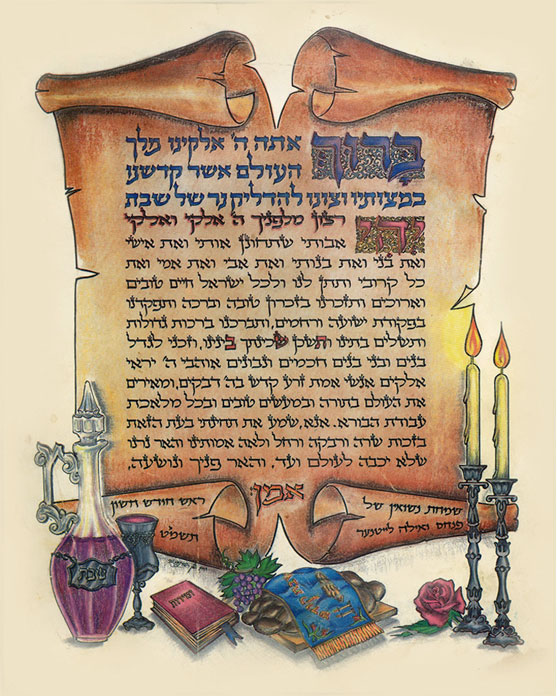 ברוך אתה ה' אלקינו מלך
העולם אשר קדשנו
במצותיו וצונו להדליק נר של שבת
יהי רצון מלפניך ה' אלקי ואלקי
אבותי שתחונן אותי ואת אישי
ואת בני ואת בנותי ואת אבי ואת אמי ואת
כל קרובי ותתן לנו ולכל ישראל חיים טובים
וארוכים ותזכרנו בזכרון טובה וברכה ותפקדנו
בפקודת ישועה ורחמים, ותברכנו ברכות גדולות
ותשלים בתינו ותשכן שכינתך בינינו, וזכני לגדל
בנים ובני בנים חכמים ונבונים אוהבי ה' יראי
אלקים אנשי אמת זרע קדש בה' דבקים, ומאירים
את העולם בתורה ובמעשים טובים ובכל מלאכת
עבודת הבורא. אנא, שמע את תחינתי בעת הזאת
בזכות שרה ורבקה ורחל ולאה אמותינו והאר נרנו
שלא יכבה לעולם ועד, והאר פניך ונושעה,
אמן:
שמחת נשואין של
פנחס ואילה לייטנער
ראש חודש חשון
תשמ"ט
שבת
זמירות